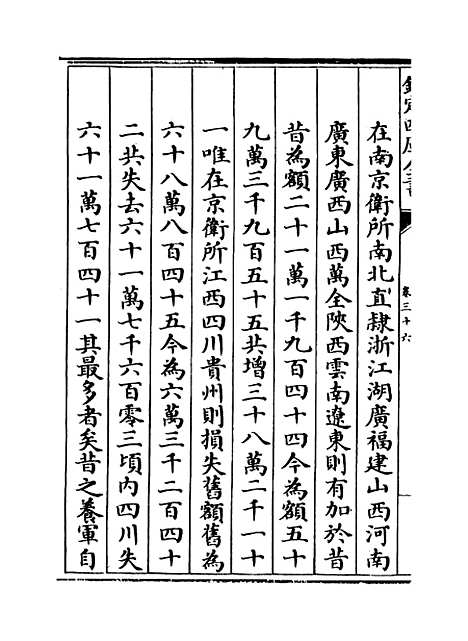 欽定四庫全書
卷三十六
在南京衛所南北直隸浙江湖廣福建山西河南
廣東廣西山西萬全陜西雲南遼東則有加於昔
昔為額二十一萬一千九百四十四今為額五十
九萬三千九百五十五共增三十八萬二千一十
一唯在京衛所江西四川貴州則損失舊額舊為
六十八萬八百四十五今為六萬三千二百四十
二共失去六十一萬七千六百零三頃内四川失
六十一萬七百四十一其最多者矣昔之養軍自